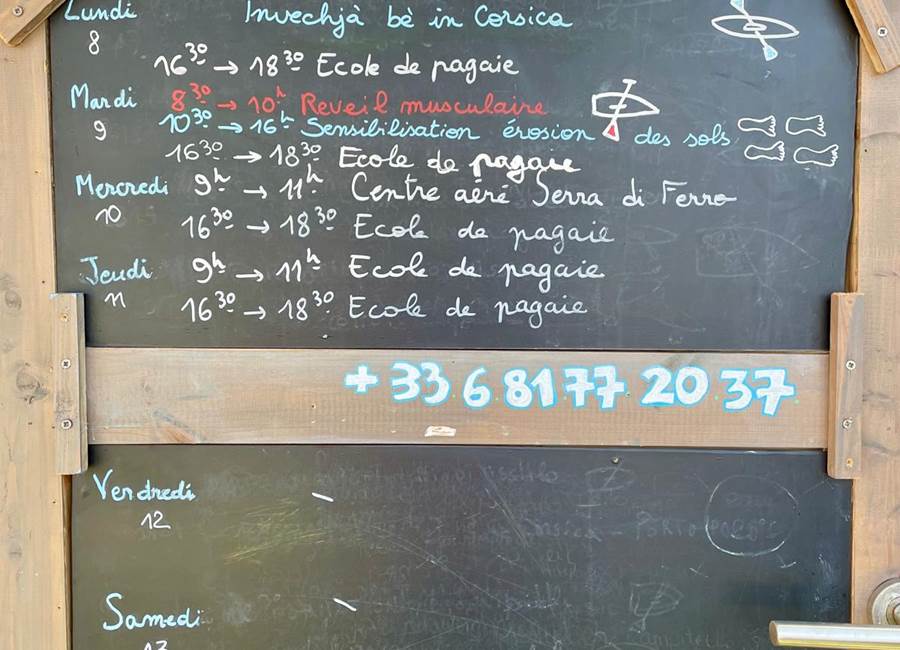 Lundi Invechjà bè in Corsica
8
16³⁰ → 18³⁰ Ecole de pagaie
Mardi 8³⁰ → 10ʰ Reveil musculaire
9 10³⁰ → 16ʰ Sensibilisation érosion des sols
16³⁰ → 18³⁰ Ecole de pagaie
Mercredi 9ʰ → 11ʰ Centre aéré Serra di Ferro
10 16³⁰ → 18³⁰ Ecole de pagaie
Jeudi 9ʰ → 11ʰ Ecole de pagaie
11 16³⁰ → 18³⁰ Ecole de pagaie
+33 6 81 77 20 37
Vendredi
12
Samedi
13